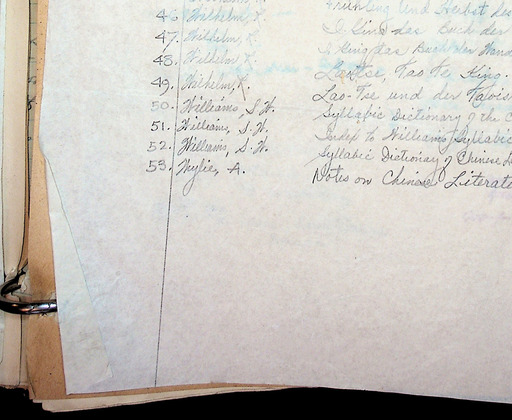 46. Wilhelm, R. Frühling und Herbst des
47. Wilhelm, R. I Ging das Buch der
48. Wilhelm, R. I Ging das Buch der Wand
49. Wilhelm, R. Laotse, Tao Te King.
50. Williams, S.W. Lao-Tse und der Taois
51. Williams, S.W. Syllabic Dictionary of the C
52. Williams, S.W. Index to Williams, Syllabic
53. Wylie, A. Syllabic Dictionary of Chinese L
Notes on Chinese Literat